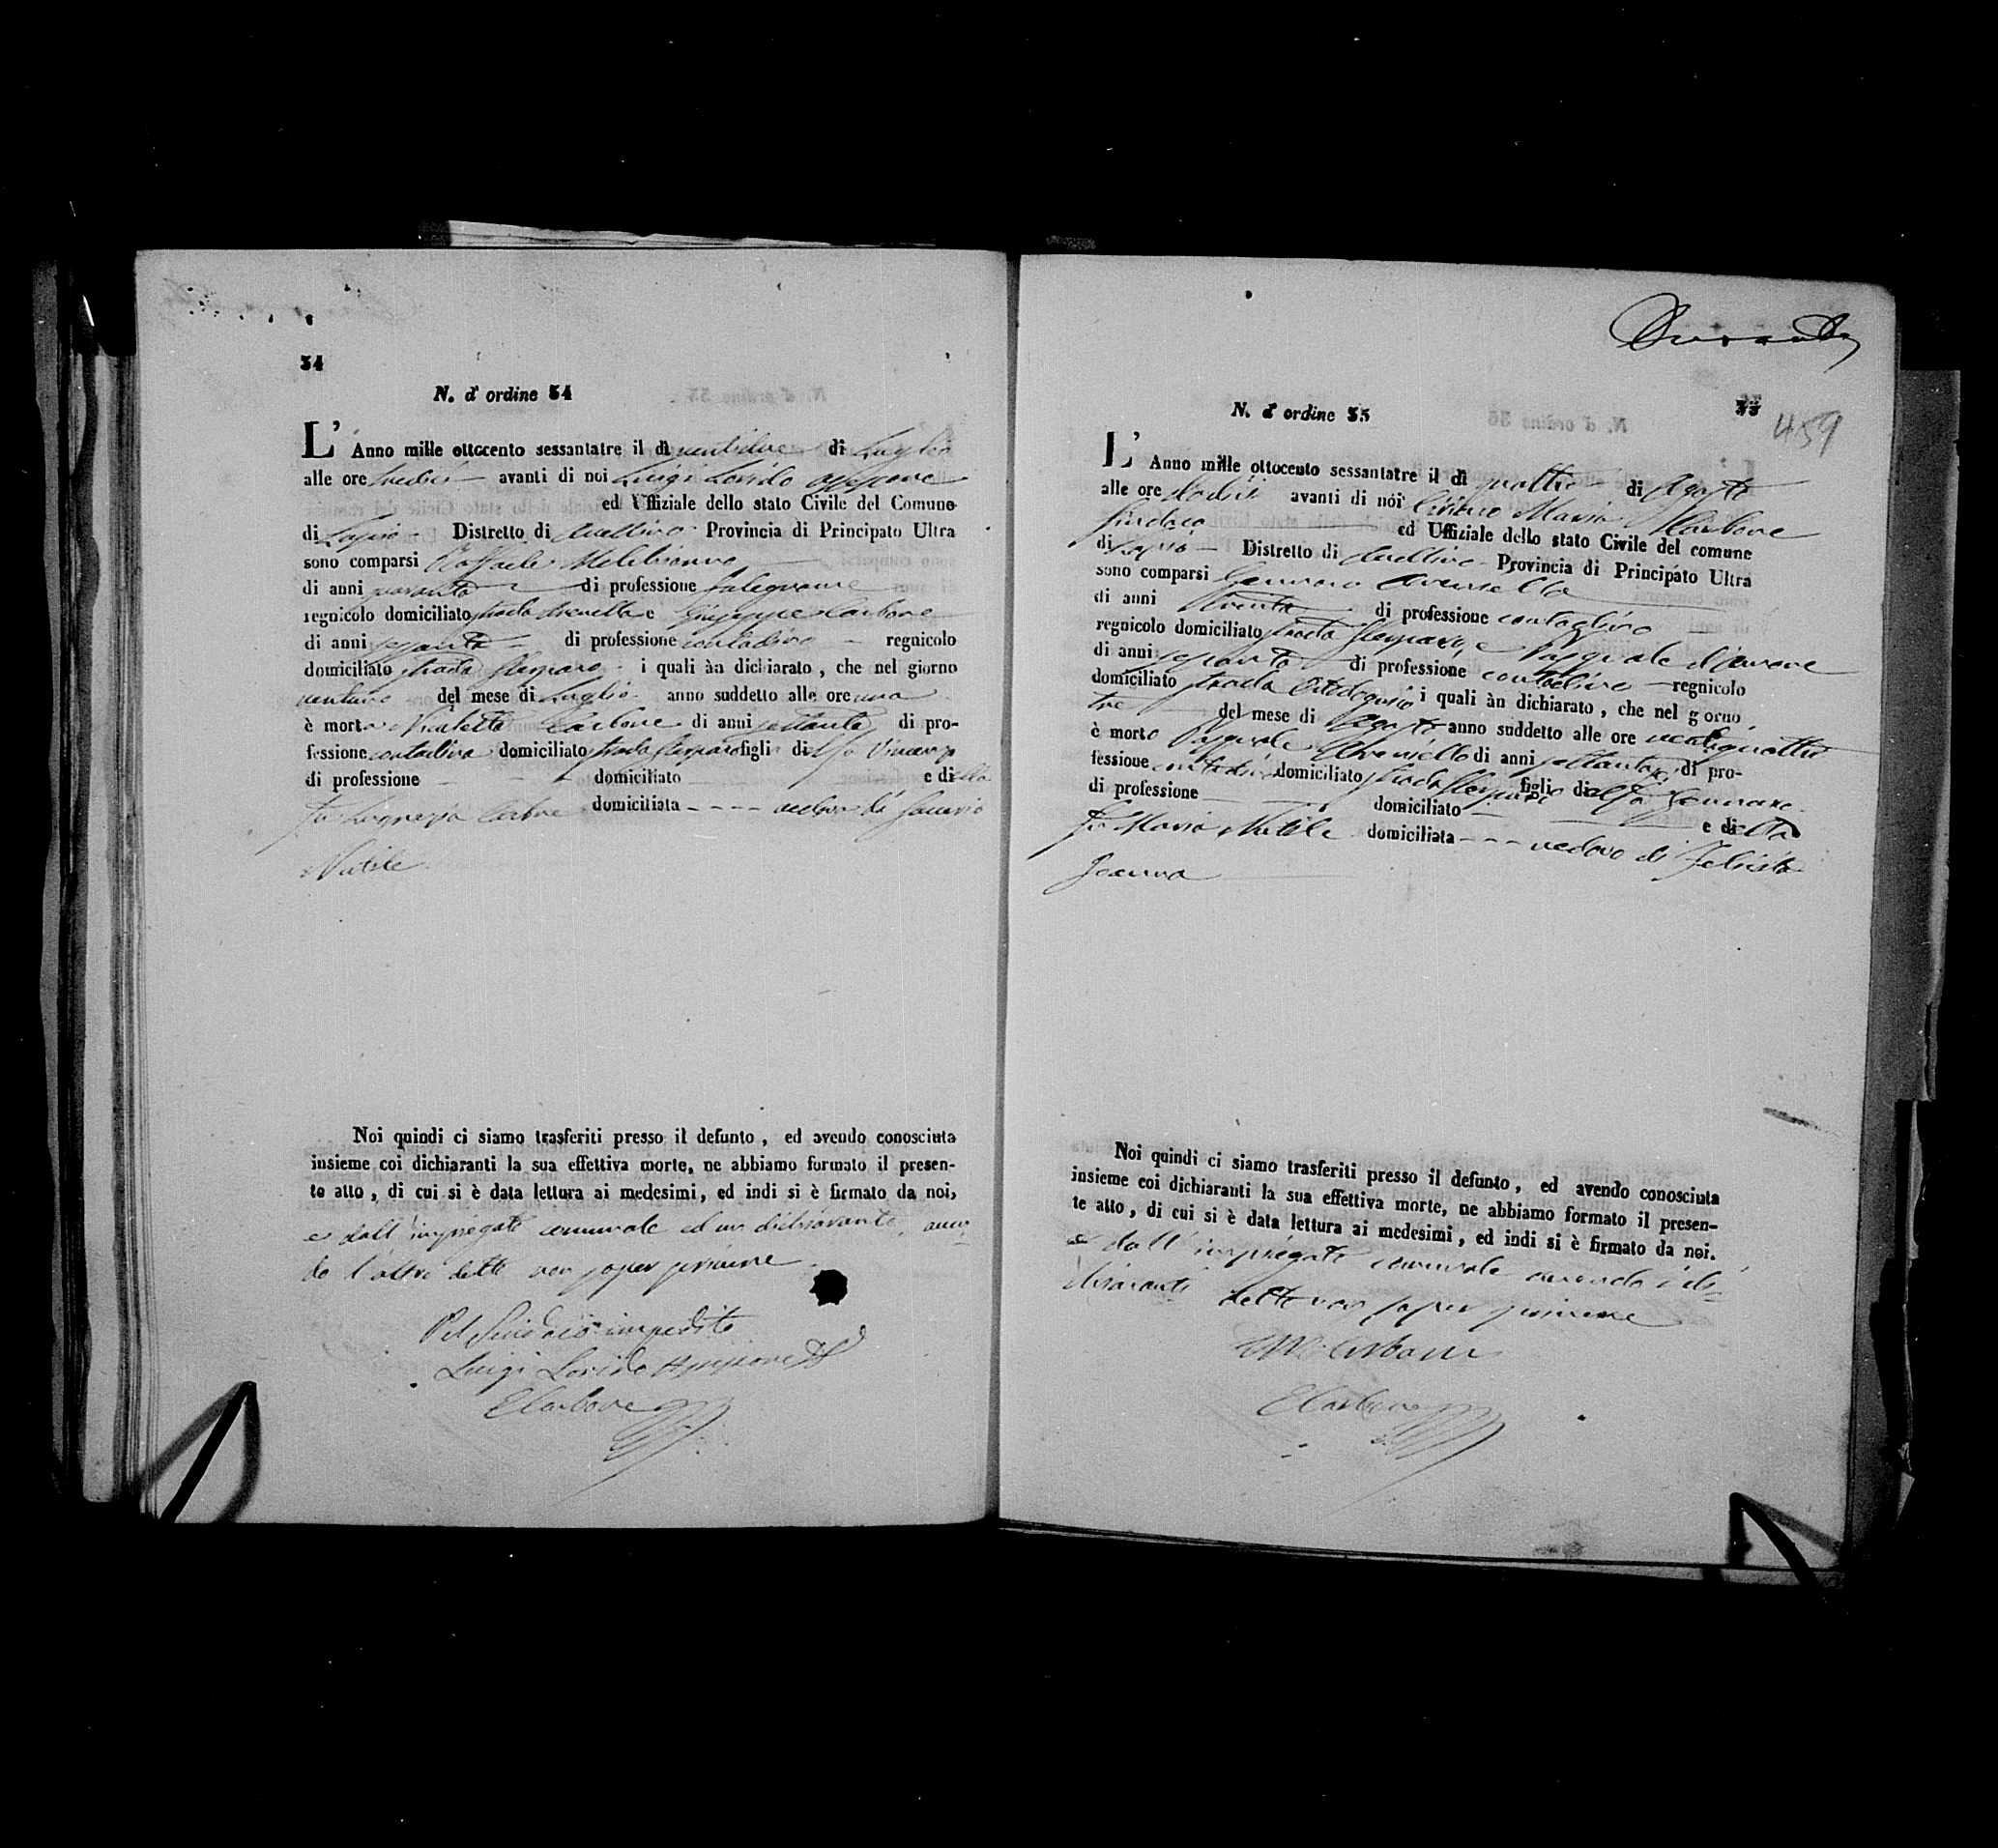 34
N. d' ordine 34
L' Anno mille ottocento sessantatre il dì ventidue di Luglio
alle ore tredici avanti di noi Luigi Lorido assessore
ed Uffiziale dello stato Civile del Comune
di Lapio Distretto di Avellino Provincia di Principato Ultra
sono comparsi Raffaele
di anni quaranta di professione falegname
regnicolo domiciliato strada e Giuseppe Carbone
di anni sessanta di professione contadino regnicolo
domiciliato strada i quali àn dichiarato, che nel giorno
ventuno del mese di Luglio anno suddetto alle ore una
è morta Nicoletta Carbone di anni settanta di pro-
fessione contadina domiciliato strada figlia di
di professione domiciliato e di
fu Lugrezia Carbone domiciliata vedova di Saverio
Nutile
Noi quindi ci siamo trasferiti presso il defunto, ed avendo conosciuta
insieme coi dichiaranti la sua effettiva morte, ne abbiamo formato il presen-
te atto, di cui si è data lettura ai medesimi, ed indi si è firmato da noi,
e dall'impiegato comunale ed un dichiarante, aven-
do l'altro detto non saper scrivere
Pel Sindaco impedito
Luigi Lorido Assessore
E Carbone
N. d' ordine 35
35
459
L' Anno mille ottocento sessantatre il dì quattro di Agosto
alle ore dodici avanti di noi Maria Carbone
Sindaco ed Uffiziale dello stato Civile del comune
di Lapio Distretto di Avellino Provincia di Principato Ultra
sono comparsi Gennaro
di anni trenta di professione contadino
regnicolo domiciliato strada e Pasquale
di anni sessanta di professione contadino regnicolo
domiciliato strada i quali àn dichiarato, che nel giorno
tre del mese di Agosto anno suddetto alle ore ventiquattro
è morto Pasquale di anni di pro-
fessione contadino domiciliato strada figli di fu Gennaro
di professione domiciliato e di
fu Maria Nutile domiciliata vedovo di
Noi quindi ci siamo trasferiti presso il defunto, ed avendo conosciuta
insieme coi dichiaranti la sua effettiva morte, ne abbiamo formato il presen-
te atto, di cui si è data lettura ai medesimi, ed indi si è firmato da noi.
e dall'impiegato comunale avendo i di-
chiaranti detto non saper scrivere
Carbone
E Carbone